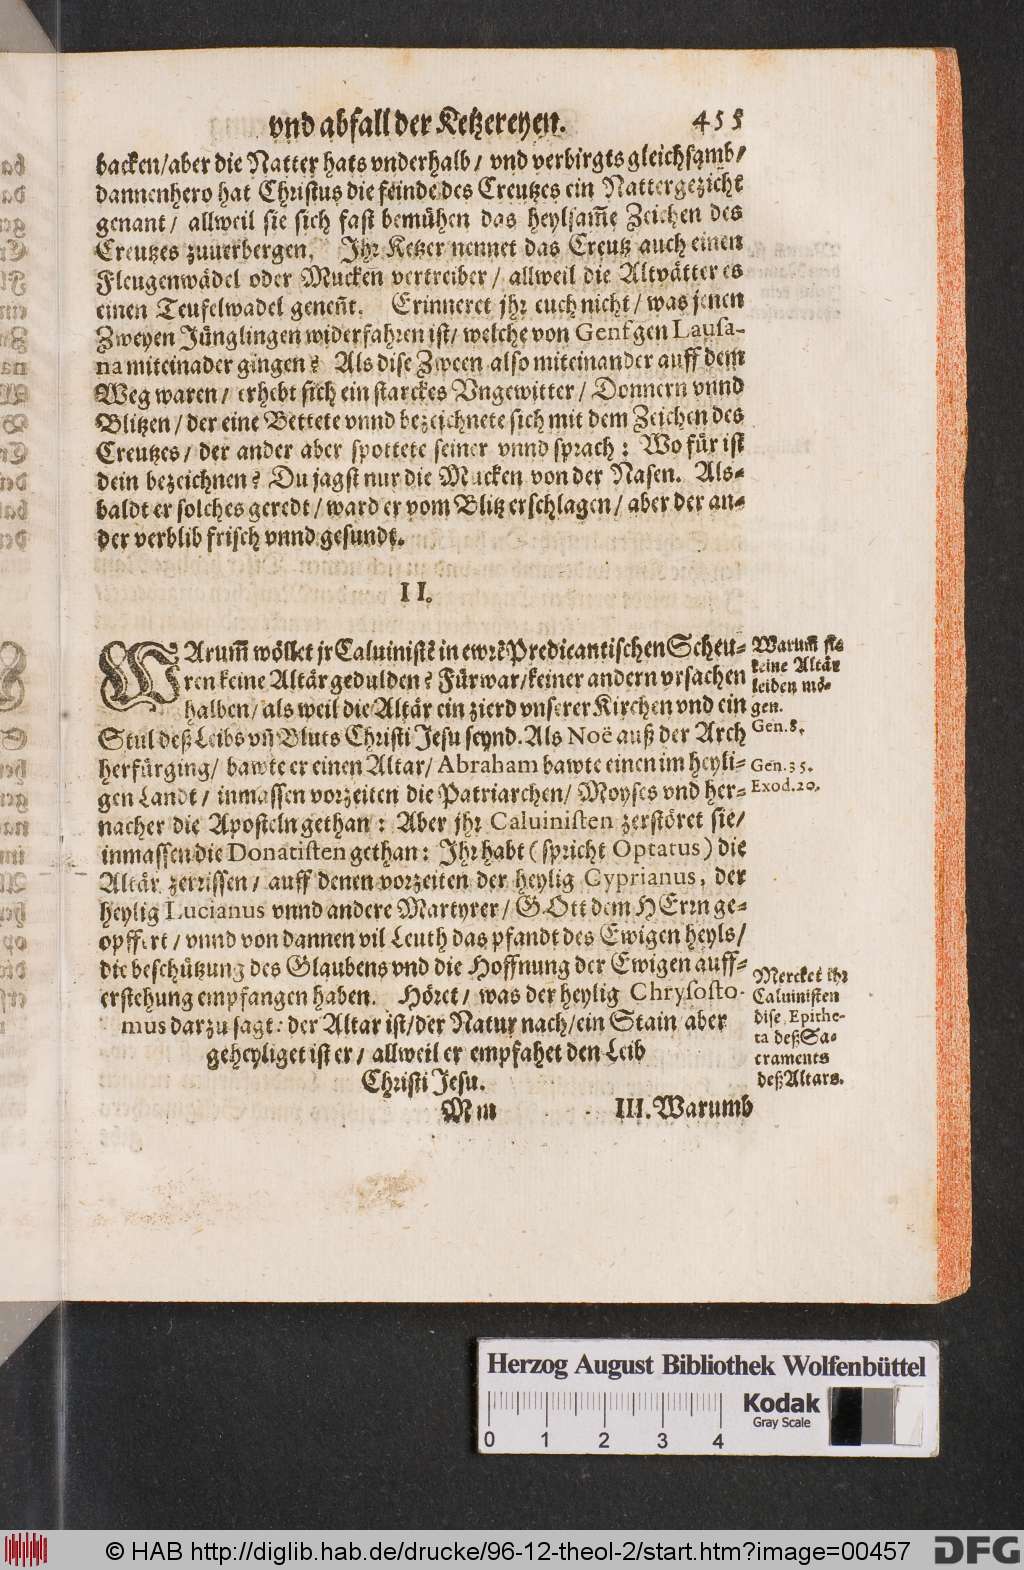 vnd abfall der Ketzereyen. 455
backen/aber die Natter hats vnderhalb/ vnd verbirgts gleichsamb/
dannenhero hat Christus die feinde des Creutzes ein Nattergezicht
genant/ allweil sie sich fast bemühen das heylsam̃e Zeichen des
Creutzes zuuerbergen. Jhr Ketzer nennet das Creutz auch einen
Fleugenwädel oder Mucken vertreiber/ allweil die Altvätter es
einen Teufelwadel geneñt. Erinneret jhr euch nicht/ was jenen
Zweyen Jünglingen widerfahren ist/ welche von Genf gen Lausa-
na miteinader gingen? Als dise Zween also miteinander auff dem
Weg waren/ erhebt sich ein starckes Vngewitter/ Donnern vnnd
Blitzen/ der eine Bettete vnnd bezeichnete sich mit dem Zeichen des
Creutzes/ der ander aber spottete seiner vnnd sprach: Wo für ist
dein bezeichnen? Du jagst nur die Mucken von der Nasen. Als-
baldt er solches geredt/ ward er vom Blitz erschlagen/ aber der an-
der verblib frisch vnnd gesundt.
II.
WArum̃ wöllet jr Caluinistẽ in ewrẽ Predicantischen Scheu-
ren keine Altär gedulden? Fürwar/keiner andern vrsachen
halben/ als weil die Altär ein zierd vnserer Kirchen vnd ein
Stul deß Leibs vñ Bluts Christi Jesu seynd. Als Noë auß der Arch
herfürging/ bawte er einen Altar/ Abraham bawte einen im heyli-
gen Landt/ inmassen vorzeiten die Patriarchen/ Moyses vnd her-
nacher die Aposteln gethan: Aber jhr Caluinisten zerstöret sie/
inmassen die Donatisten gethan: Jhr habt (spricht Optatus) die
Altär zerrissen/ auff denen vorzeiten der heylig Cyprianus, der
heylig Lucianus vnnd andere Martyrer/ GOtt dem HErrn ge-
opffert/ vnnd von dannen vil Leuth das pfandt des Ewigen heyls/
die beschützung des Glaubens vnd die Hoffnung der Ewigen auff-
erstehung empfangen haben. Höret/ was der heylig Chrysosto-
mus darzu sagt: der Altar ist/der Natur nach/ein Stain aber
geheyliget ist er/ allweil er empfahet den Leib
Christi Jesu.
Mm III. Warumb
Warum̃ sie
keine Altär
leiden mö-
gen.
Gen.8.
Gen.35.
Exod.20.
Mercket ihr
Caluinisten
dise Epithe-
ta deß Sa-
craments
deß Altars.
Herzog August Bibliothek Wolfenbüttel
0 1 2 3 4
Kodak
Gray Scale
© HAB http://diglib.hab.de/drucke/96-12-theol-2/start.htm?image=00457
DFG